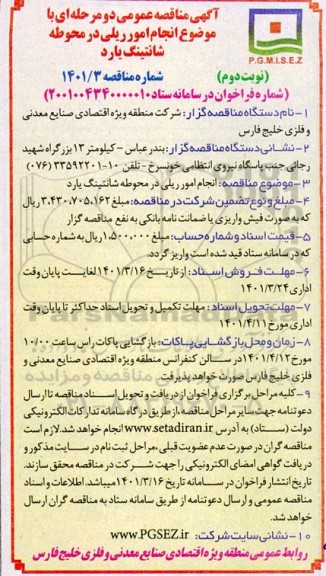 آگهی مناقصه عمومی دو مرحله ای با
موضوع انجام امور ریلی در محوطه
شانتینگ یارد
P.G.M.I.S.E.Z
(نوبت دوم)
شماره مناقصه ۱۴۰۱/۳
(شماره فراخوان در سامانه ستاد ۲۰۰۱۰۰۴۳۴۰۰۰۰۰۱۰)
۱- نام دستگاه مناقصه گزار: شرکت منطقه ویژه اقتصادی صنایع معدنی
و فلزی خلیج فارس
۲- نشانی دستگاه مناقصه گزار: بندرعباس - کیلومتر ۱۳ بزرگراه شهید
رجائی جنب پاسگاه نیروی انتظامی خونسرخ - تلفن ۱۰-۳۳۵۹۲۲۰۱ (۰۷۶)
۳- موضوع مناقصه: انجام امور ریلی در محوطه شانتینگ یارد
۴- مبلغ و نوع تضمین شرکت در مناقصه: مبلغ ۳.۴۳۰.۷۰۵.۱۶۲ ریال
که به صورت فیش واریزی یا ضمانت نامه بانکی به نفع مناقصه گزار
۵- قیمت اسناد و شماره حساب: مبلغ ۱.۵۰۰.۰۰۰ ریال به شماره حسابی
که در سامانه ستاد قید شده است واریز گردد.
۶- مهلت فروش اسناد: از تاریخ ۱۴۰۱/۳/۱۶ لغایت پایان وقت
اداری ۱۴۰۱/۳/۲۴
۷- مهلت تحویل اسناد: مهلت تکمیل و تحویل اسناد حداکثر تا پایان وقت
اداری مورخ ۱۴۰۱/۴/۱۱
۸- زمان و محل بازگشایی پاکات: بازگشایی پاکات راس ساعت ۱۰/۰۰
مورخ ۱۴۰۱/۴/۱۲ در سالن کنفرانس منطقه ویژه اقتصادی صنایع معدنی و
فلزی خلیج فارس صورت خواهد پذیرفت.
۹- کلیه مراحل برگزاری فراخوان از دریافت و تحویل اسناد مناقصه تا ارسال
دعوتنامه جهت سایر مراحل مناقصه، از طریق درگاه سامانه تدارکات الکترونیکی
دولت (ستاد) به آدرس www.setadiran.ir انجام خواهد شد. لازم است
مناقصه گران در صورت عدم عضویت قبلی، مراحل ثبت نام در سایت مذکور و
دریافت گواهی امضای الکترونیکی را جهت شرکت در مناقصه محقق سازند.
تاریخ انتشار فراخوان در سامانه تاریخ ۱۴۰۱/۳/۱۶ میباشد. اطلاعات و اسناد
مناقصه عمومی و ارسال دعوتنامه از طریق سامانه ستاد به مناقصه گران ارسال
خواهد شد.
۱۰- نشانی سایت شرکت: www.PGSEZ.ir
روابط عمومی منطقه ویژه اقتصادی صنایع معدنی و فلزی خلیج فارس